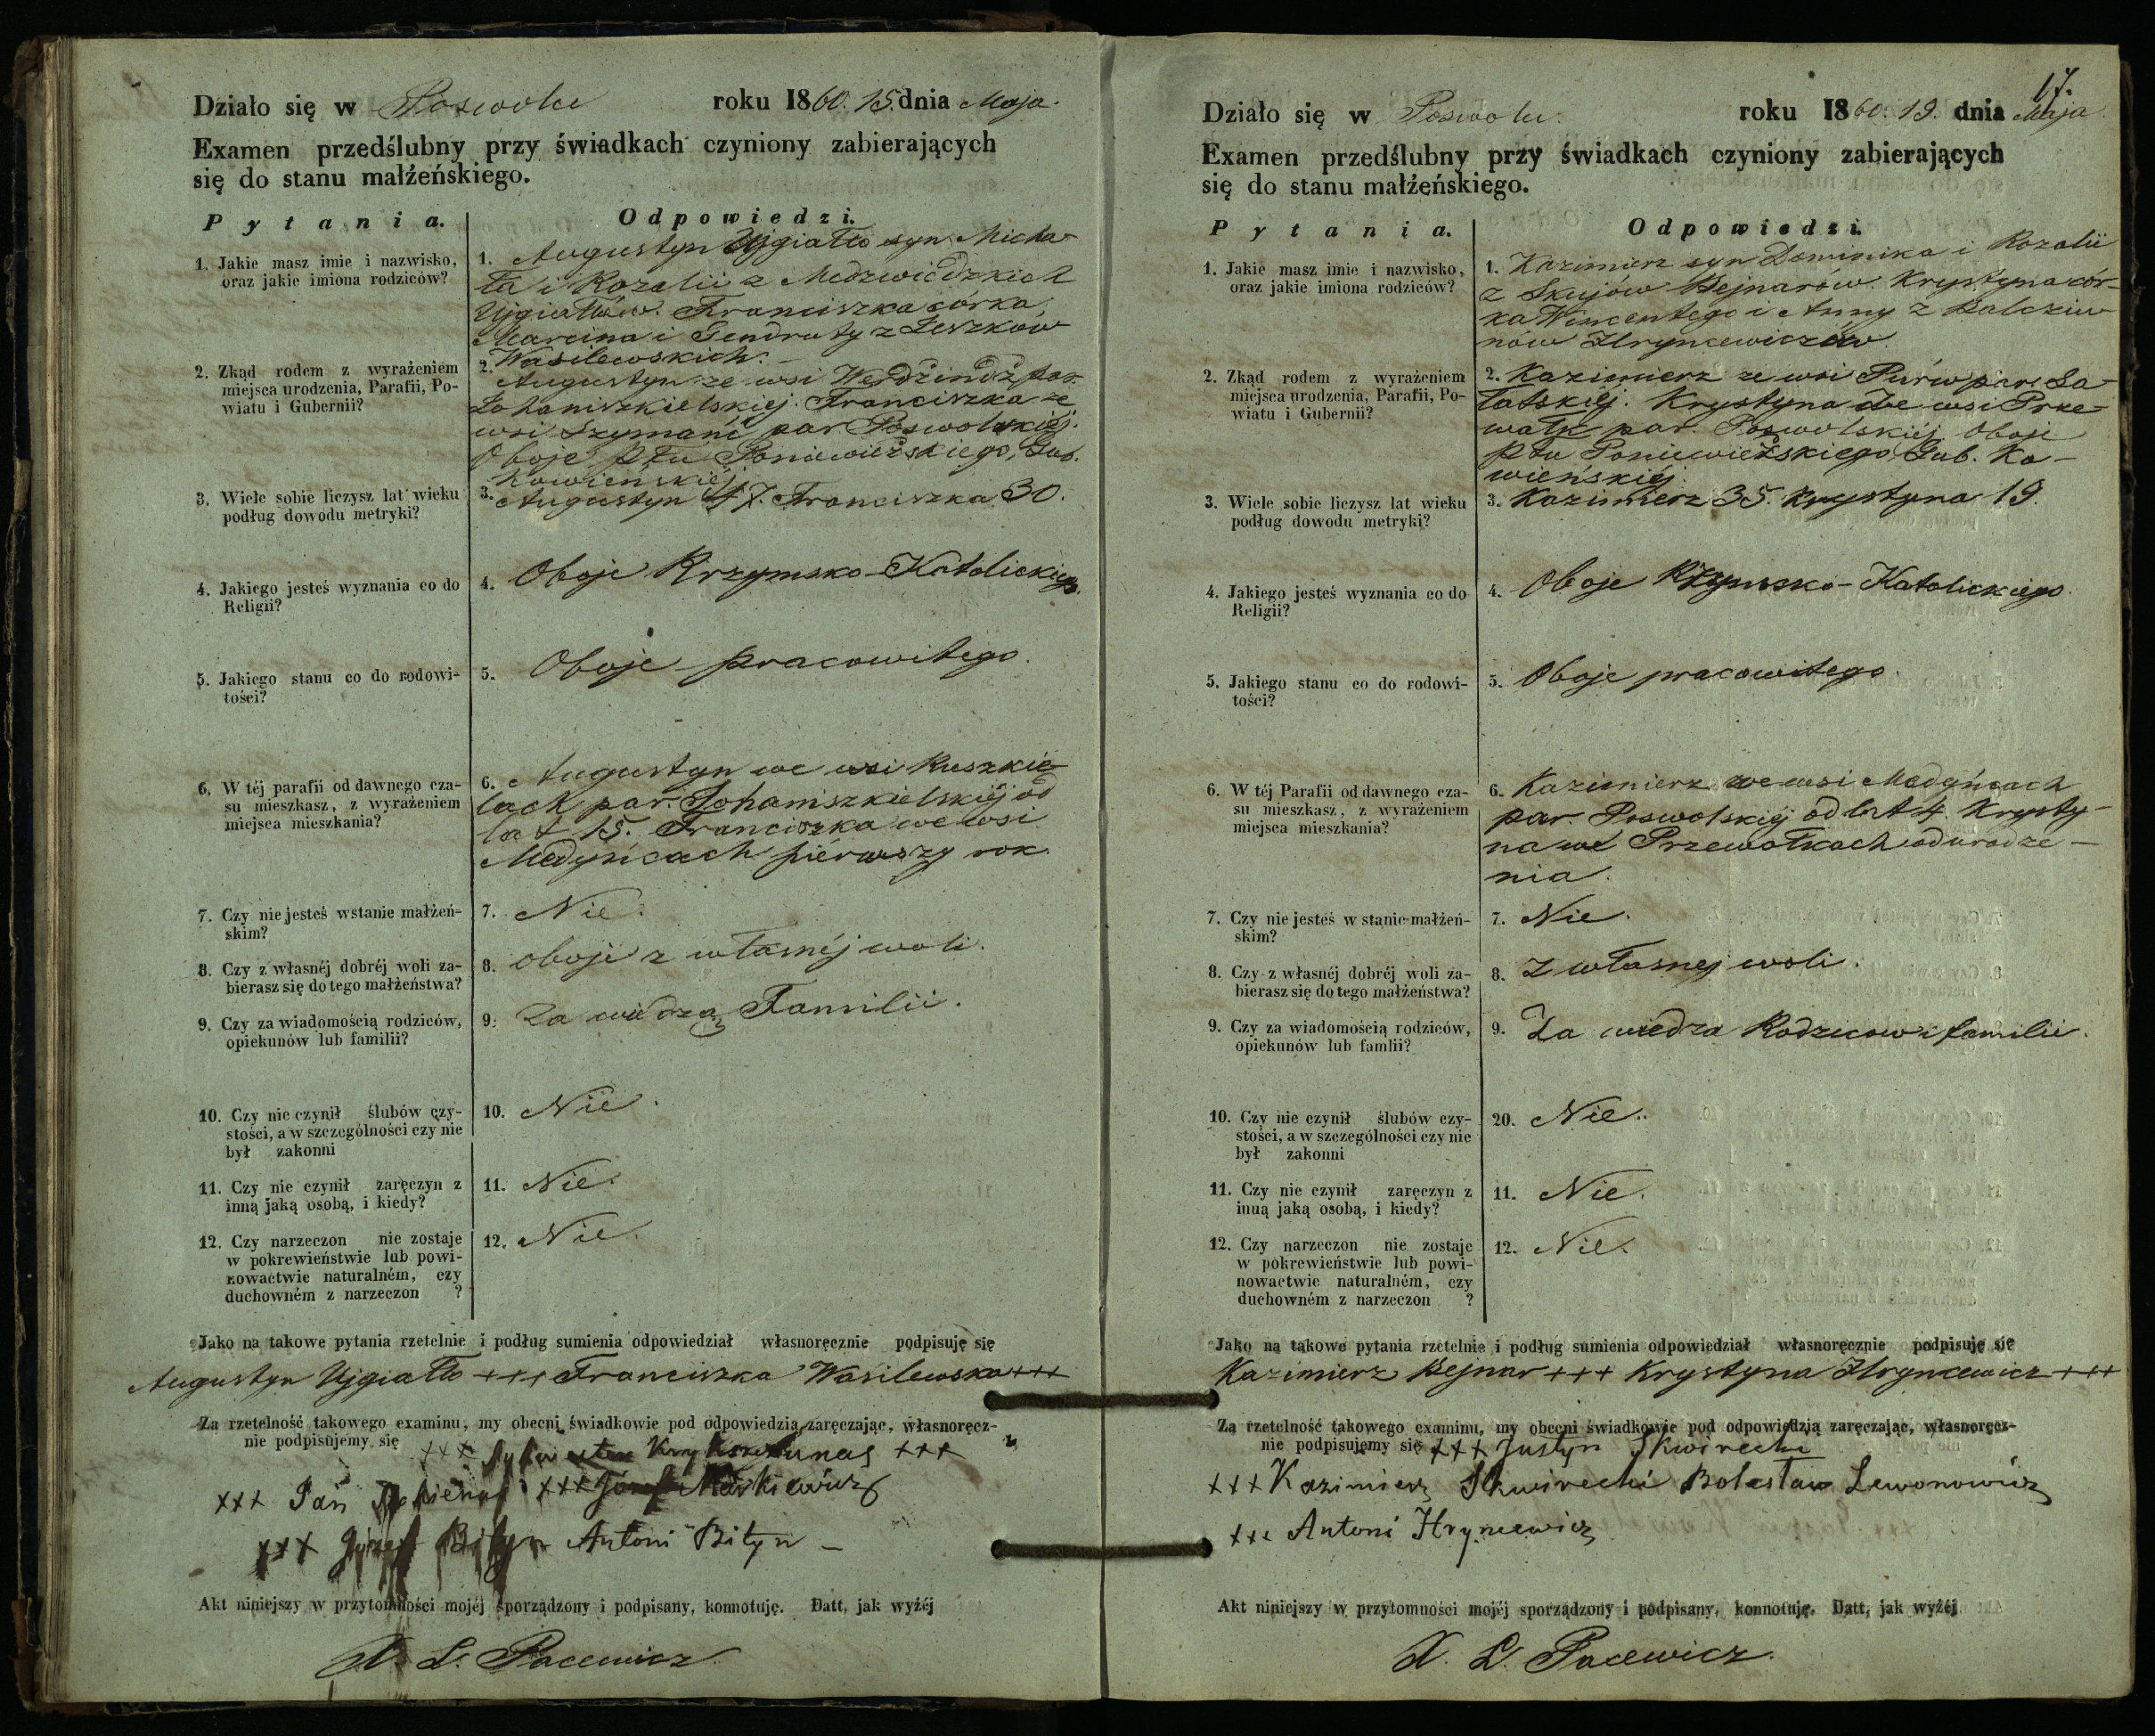 Działo się w Poswolu roku 1860. 15. dnia Maja.
Examen przedślubny przy świadkach czyniony zabierających
się do stanu małżeńskiego.
Pytania.
Odpowiedzi.
1. Jakie masz imie i nazwisko,
oraz jakie imiona rodziców?
1. Augustyn Ujgiałło syn Micha-
ła i Rozalii z Medzwiedzkich
Ujgiałłów. Franciszka córka
Marcina i Gendruty z Leszków
Wasilewskich.
2. Zkąd rodem z wyrażeniem
miejsca urodzenia, Parafii, Po-
wiatu i Gubernii?
2. Augustyn ze wsi par.
Johaniszkielskiej. Franciszka ze
wsi Szymanć par Poswolskiéj.
Oboje Ptu Poniewieżskiego, Gub.
Kowieńskiéj.
3. Wiele sobie liczysz lat wieku
podług dowodu metryki?
3. Augustyn 47. Franciszka 30.
4. Jakiego jesteś wyznania co do
Religii?
4. Oboje Rzymsko-Katolickiego.
5. Jakiego stanu co do rodowi-
tości?
5. Oboje pracowitego.
6. W téj parafii od dawnego cza-
su mieszkasz, z wyrażeniem
miejsca mieszkania?
6. Augustyn we wsi Kuszkie-
lach par. Johaniszkielskiéj od
lat 15. Franciszka we wsi
Medyńcach piérwszy rok.
7. Czy nie jesteś wstanie małżeń-
skim?
7. Nie.
8. Czy z własnéj dobréj woli za-
bierasz się do tego małżeństwa?
8. Oboje z własnéj woli.
9. Czy za wiadomością rodziców,
opiekunów lub familii?
9. Za wiedzą Familii.
10. Czy nie czynił ślubów czy-
stości, a w szczególności czy nie
był zakonni
10. Nie.
11. Czy nie czynił zaręczyn z
inną jaką osobą, i kiedy?
11. Nie.
12. Czy narzeczon nie zostaje
w pokrewieństwie lub powi-
nowactwie naturalném, czy
duchowném z narzeczon ?
12. Nie.
Jako na takowe pytania rzetelnie i podług sumienia odpowiedział własnoręcznie podpisuję się
Augustyn Ujgiałło +++ Franciszka Wasilewska +++
Za rzetelność takowego examinu, my obecni świadkowie pod odpowiedzią zaręczając, własnoręcz-
nie podpisujemy się +++ +++
+++ Jan +++ Józef Markiewicz
+++ Józef Bityn Antoni Bityn –
Akt niniejszy w przytomności mojéj sporządzony i podpisany, konnotuję. Datt, jak wyżéj
X. L. Pacewicz
17.
Działo się w Poswolu. roku 1860. 19. dnia Maja
Examen przedślubny przy świadkach czyniony zabierających
się do stanu małżeńskiego.
Pytania.
Odpowiedzi.
1. Jakie masz imie i nazwisko,
oraz jakie imiona rodziców?
1. Kazimierz syn Dominika i Rozalii
z Skujów Bejnarów. Krystyna cór-
ka Wincentego i Anny z Balcziu-
nów Hryncewiczów.
2. Zkąd rodem z wyrażeniem
miejsca urodzenia, Parafii, Po-
wiatu i Gubernii?
2. Kazimierz ze wsi Purw par. Sa-
łatskiéj. Krystyna ze wsi Prze-
wałk par. Poswolskiéj Oboje
Ptu Poniewieżskiego, Gub. Ko-
wieńskiéj.
3. Wiele sobie liczysz lat wieku
podług dowodu metryki?
3. Kazimierz 35. Krystyna 19.
4. Jakiego jesteś wyznania co do
Religii?
4. Oboje Rzymsko-Katolickiego.
5. Jakiego stanu co do rodowi-
tości?
5. Oboje pracowitego.
6. W téj Parafii od dawnego cza-
su mieszkasz, z wyrażeniem
miejsca mieszkania?
6. Kazimierz we wsi Medyńcach
par. Poswolskiéj od lat 4. Krysty-
na we Przewałkach od urodze-
nia.
7. Czy nie jesteś w stanie małżeń-
skim?
7. Nie.
8. Czy z własnéj dobréj woli za-
bierasz się do tego małżeństwa?
8. Z własnej woli.
9. Czy za wiadomością rodziców,
opiekunów lub famlii?
9. Za wiedza Rodzicow i familii.
10. Czy nie czynił ślubów czy-
stości, a w szczególności czy nie
był zakonni
20. Nie.
11. Czy nie czynił zaręczyn z
inną jaką osobą, i kiedy?
11. Nie.
12. Czy narzeczon nie zostaje
w pokrewieństwie lub powi-
nowactwie naturalném, czy
duchowném z narzeczon ?
12. Nie.
Jako na takowe pytania rzetelnie i podług sumienia odpowiedział własnoręcznie podpisuję się
Kazimierz Bejnar +++ Krystyna Hryncewicz +++
Za rzetelność takowego examinu, my obecni świadkowie pod odpowiedzią zaręczając, własnoręcz-
nie podpisujemy się +++ Justyn Skwirecki
+++ Kazimierz Skwirecki Bolesław Lewonowicz
+++ Antoni Hryncewicz
Akt niniejszy w przytomności mojéj sporządzony i podpisany, konnotuję. Datt, jak wyżéj
X. L. Pacewicz.